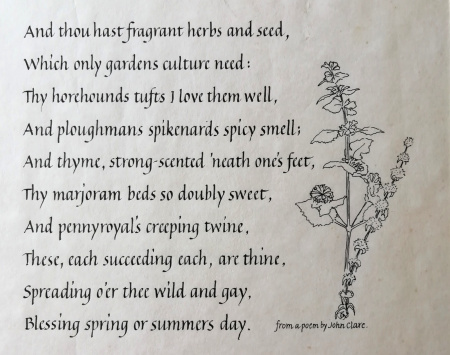 And thou hast fragrant herbs and seed,
Which only gardens culture need:
Thy horehounds tufts I love them well,
And ploughmans spikenards spicy smell;
And thyme, strong-scented 'neath one's feet,
Thy marjoram beds so doubly sweet,
And pennyroyal's creeping twine,
These, each succeeding each, are thine,
Spreading o'er thee wild and gay,
Blessing spring or summers day.
from a poem by John Clare.